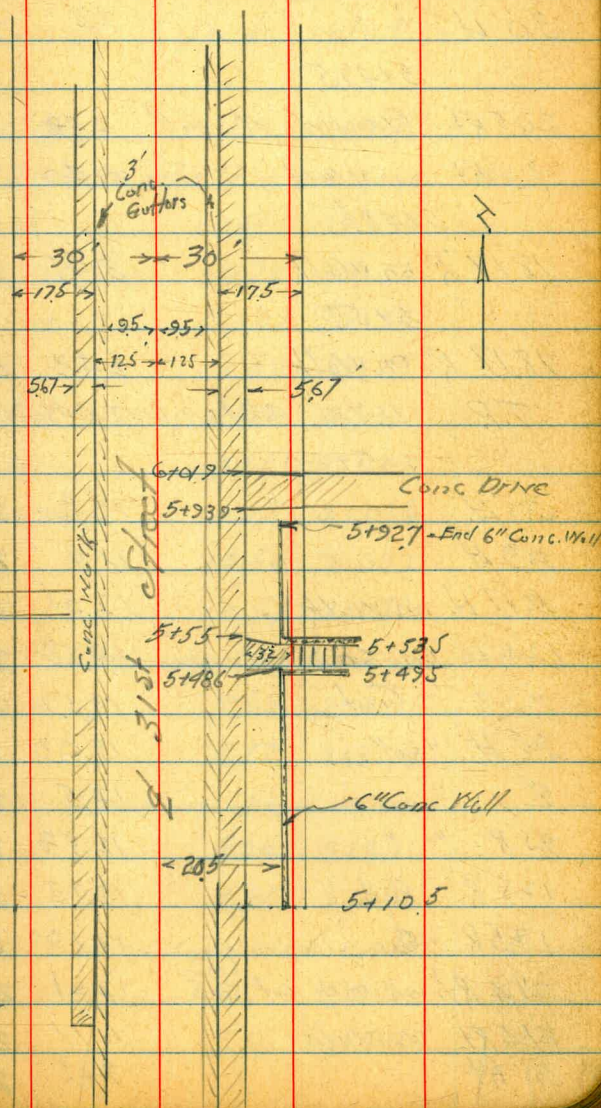 3'
Conc.
Gutters
30' 30'
17.5 17.5
9.5 9.5
12.5 12.5
5.67 5.67'
N
6+01.9
Conc Drive
5+93.9
5+92.7 - End 6" Conc. Wall
Conc Walk
℄ 31st Street
5+55
5+53.5
5+48.6
5+49.5
6" Conc Wall
20.5
5+10.5